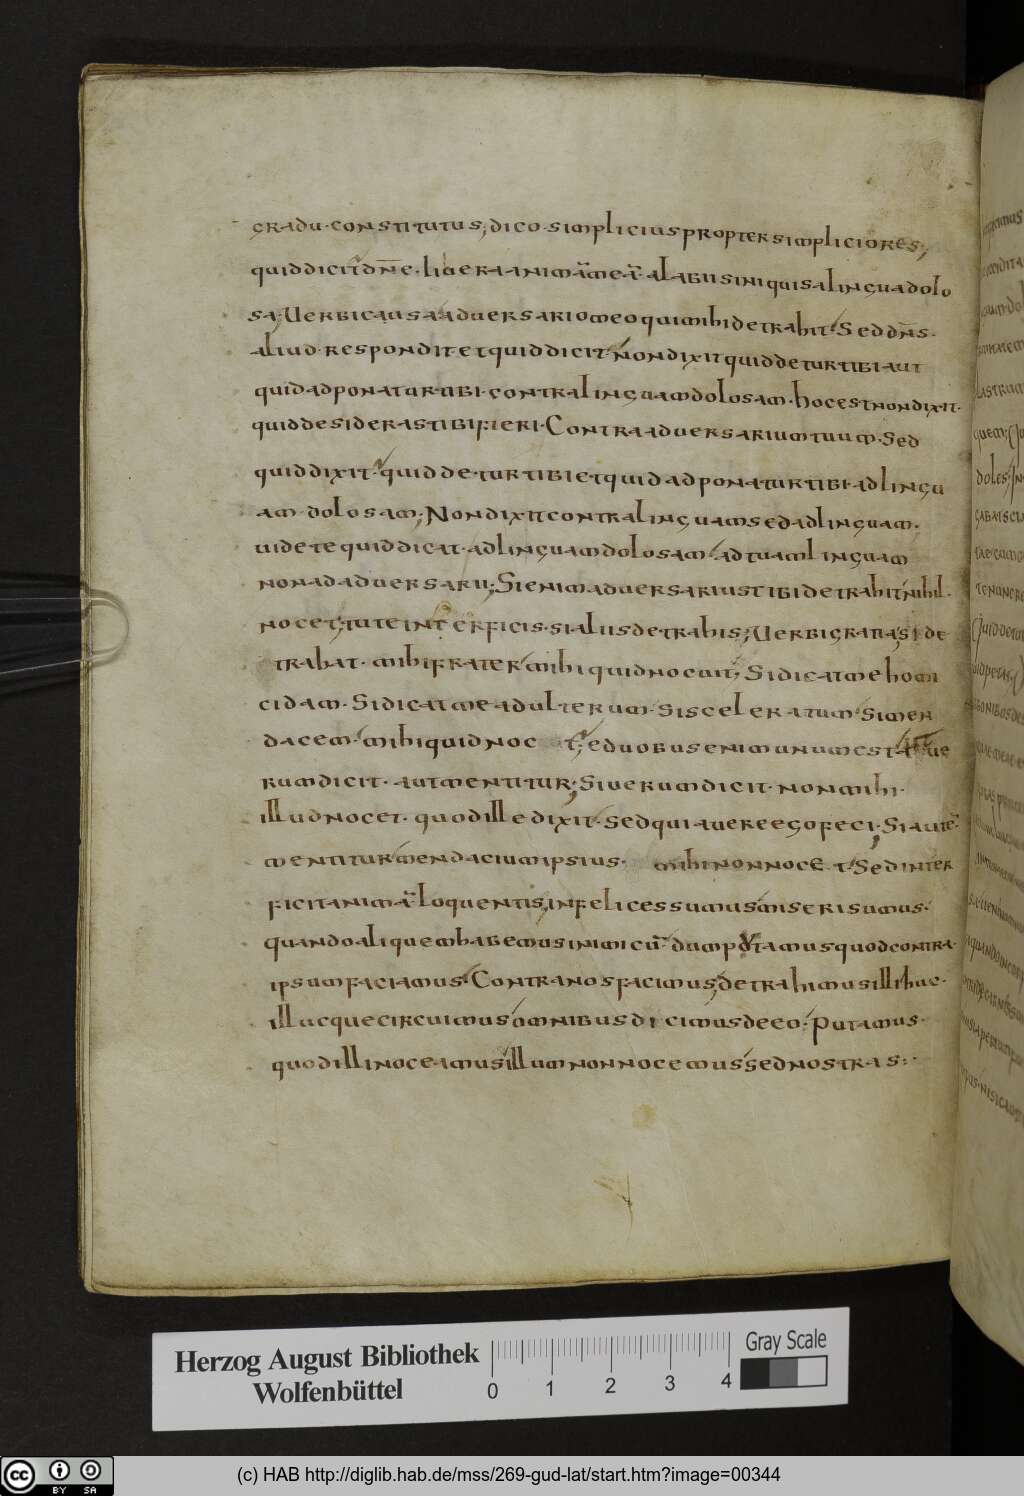 gradu · constitutus; dico · simplicius propter simpliciores;
quid dicit dn̄e · libera animā meā · a labiis iniquis a lingua dolo
sa; Uerbi causa aduersario meo qui mihi detrahit · Sed dn̄s ·
aliud · respondit et quid dicit · non dixit quid detur tibi aut
quid adponatur tibi · contra linguam dolosam · hoc est non dixit ·
quid desideras tibi fieri · Contra aduersarium tuum · Sed
quid dixit · quid detur tibi et quid adponatur tibi · ad lingu
am dolosam; Non dixit contra linguam sed ad linguam ·
uidete quid dicat · ad linguam dolosam · ad tuam linguam
non ad aduersarii; Si enim aduersarius tibi detrahit nihil ·
nocet; tu te interficis · si aliis detrahis; Uerbi gratia; si de
trahat · mihi frater mihi quid nocuit; Si dicat me homi
cidam · Si dicat me adulterum · Si sceleratum · Si men
dacem · mihi quid noc et; e duobus enim unum est aut ue
rum dicit · aut mentitur; Si uerum dicit · non mihi ·
illud nocet · quod ille dixit · sed quia uere ego feci · Si autē
mentitur mendacium ipsius · mihi non nocet · Sed inter
ficit animā loquentis, infelices sumus miseri sumus ·
quando aliquem habemus inimicū · dum putamus quod contra ·
ipsum faciamus · Contra nos facimus, detrahimus illi huc ·
illucque circuimus omnibus dicimus de eo · Putamus ·
quod illi noceamus illum non nocemus sed nos tras : ·
Herzog August Bibliothek
Wolfenbüttel
0 1 2 3 4
Gray Scale
cc BY SA
(c) HAB http://diglib.hab.de/mss/269-gud-lat/start.htm?image=00344